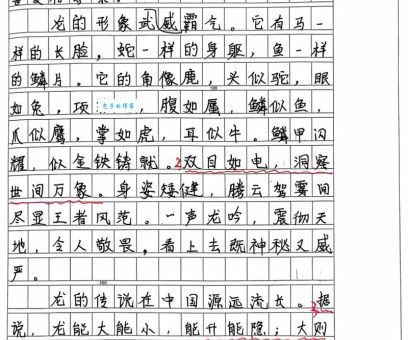 龙的形象武威霸气。它有马一
样的长脸，蛇一样的身躯，鱼一样
的鳞片。它的角像鹿，头似驼，眼
100
如兔，项 包子的博客 ，腹如，鳞似鱼，
爪似鹰，掌如虎，耳似牛。鳞甲闪
耀，似金铁铸就。2双目如电，洞察
世间万象。身姿矮健，腾云驾雾间
尽显王者风范。一声龙吟，震彻天
地，令人敬畏，看上去既神秘又威
严。
200
龙的传说在中国源远流长。3据
说，龙能大能小，能升能隐；大则